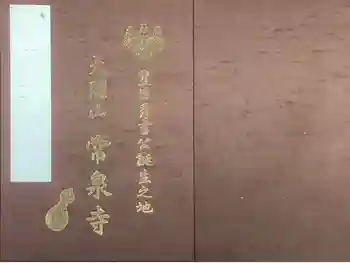 豊国秀吉公誕生之地
太閤山 常泉寺